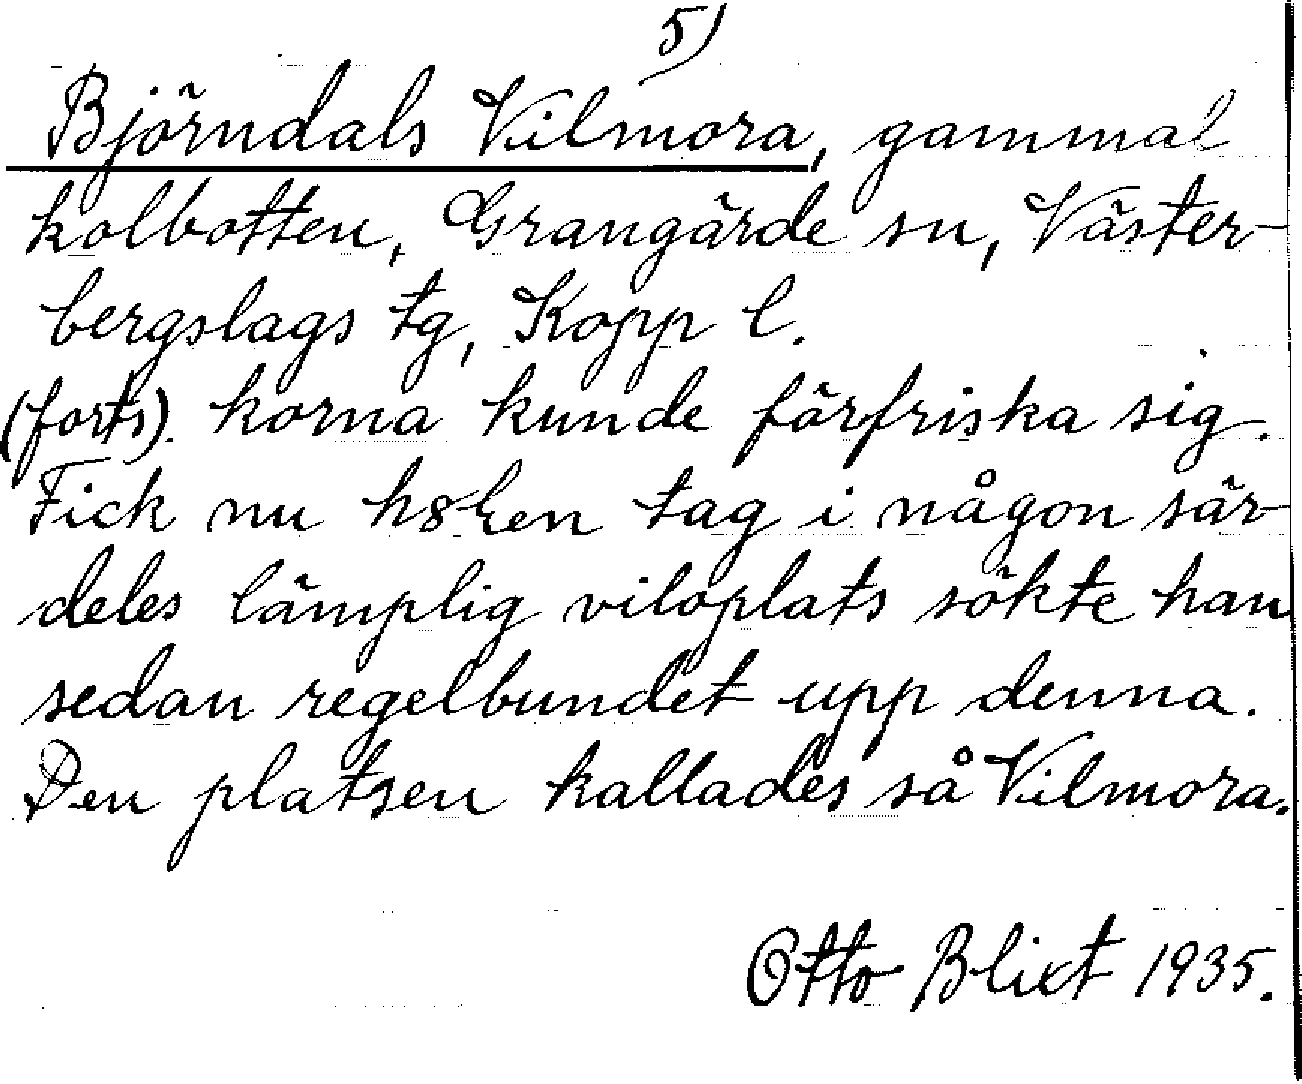 5)
Björndals Vilmora, gammal
kolbotten, Grangärde sn, Väster-
bergslags tg, Kopp l.
(forts). korna kunde förfriska sig.
Fick nu hsken tag i någon sär-
deles lämplig viloplats sökte han
sedan regelbundet upp denna.
Den platsen kallades så Vilmora.
Otto Blixt 1935.